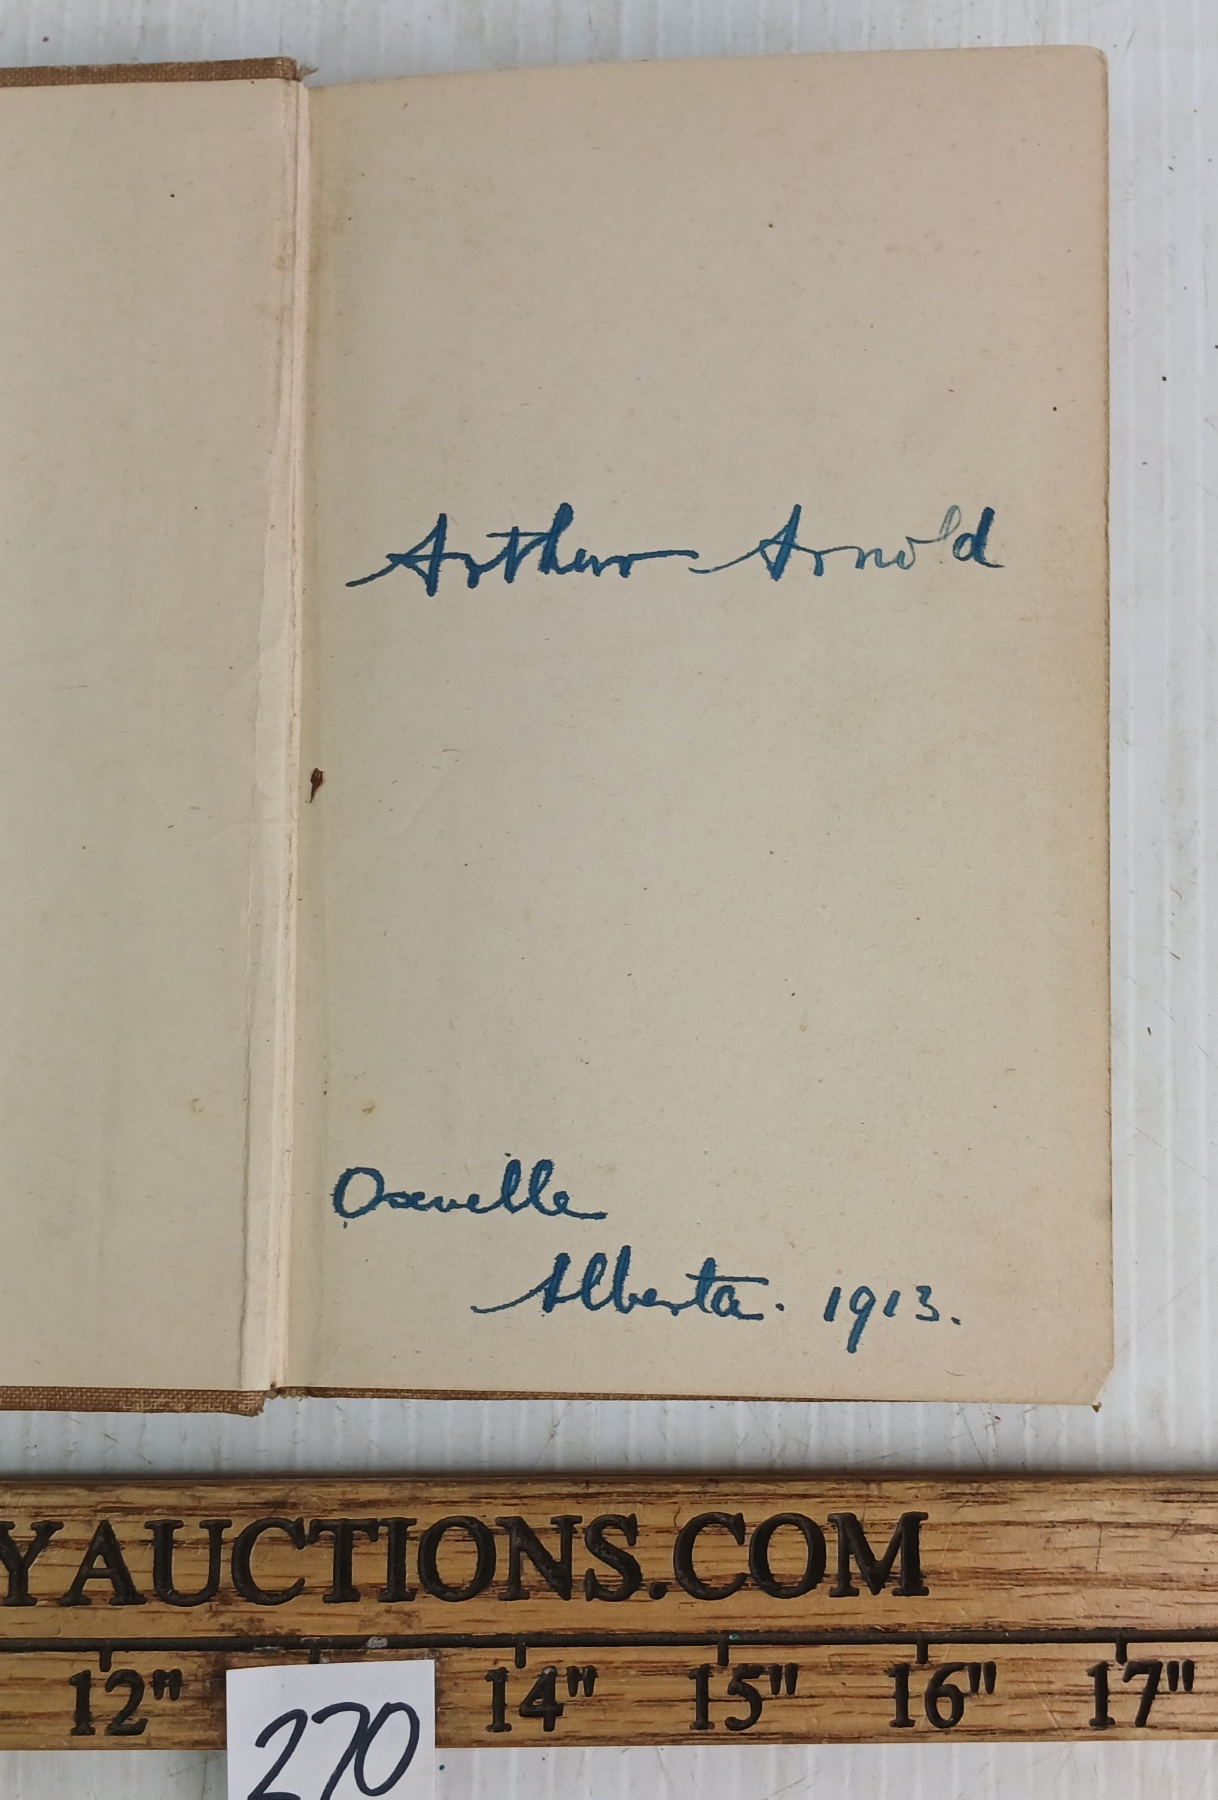 Arthur Arnold
Oxville
Alberta. 1913.
YAUCTIONS.COM
12" 14" 15" 16" 17"
270